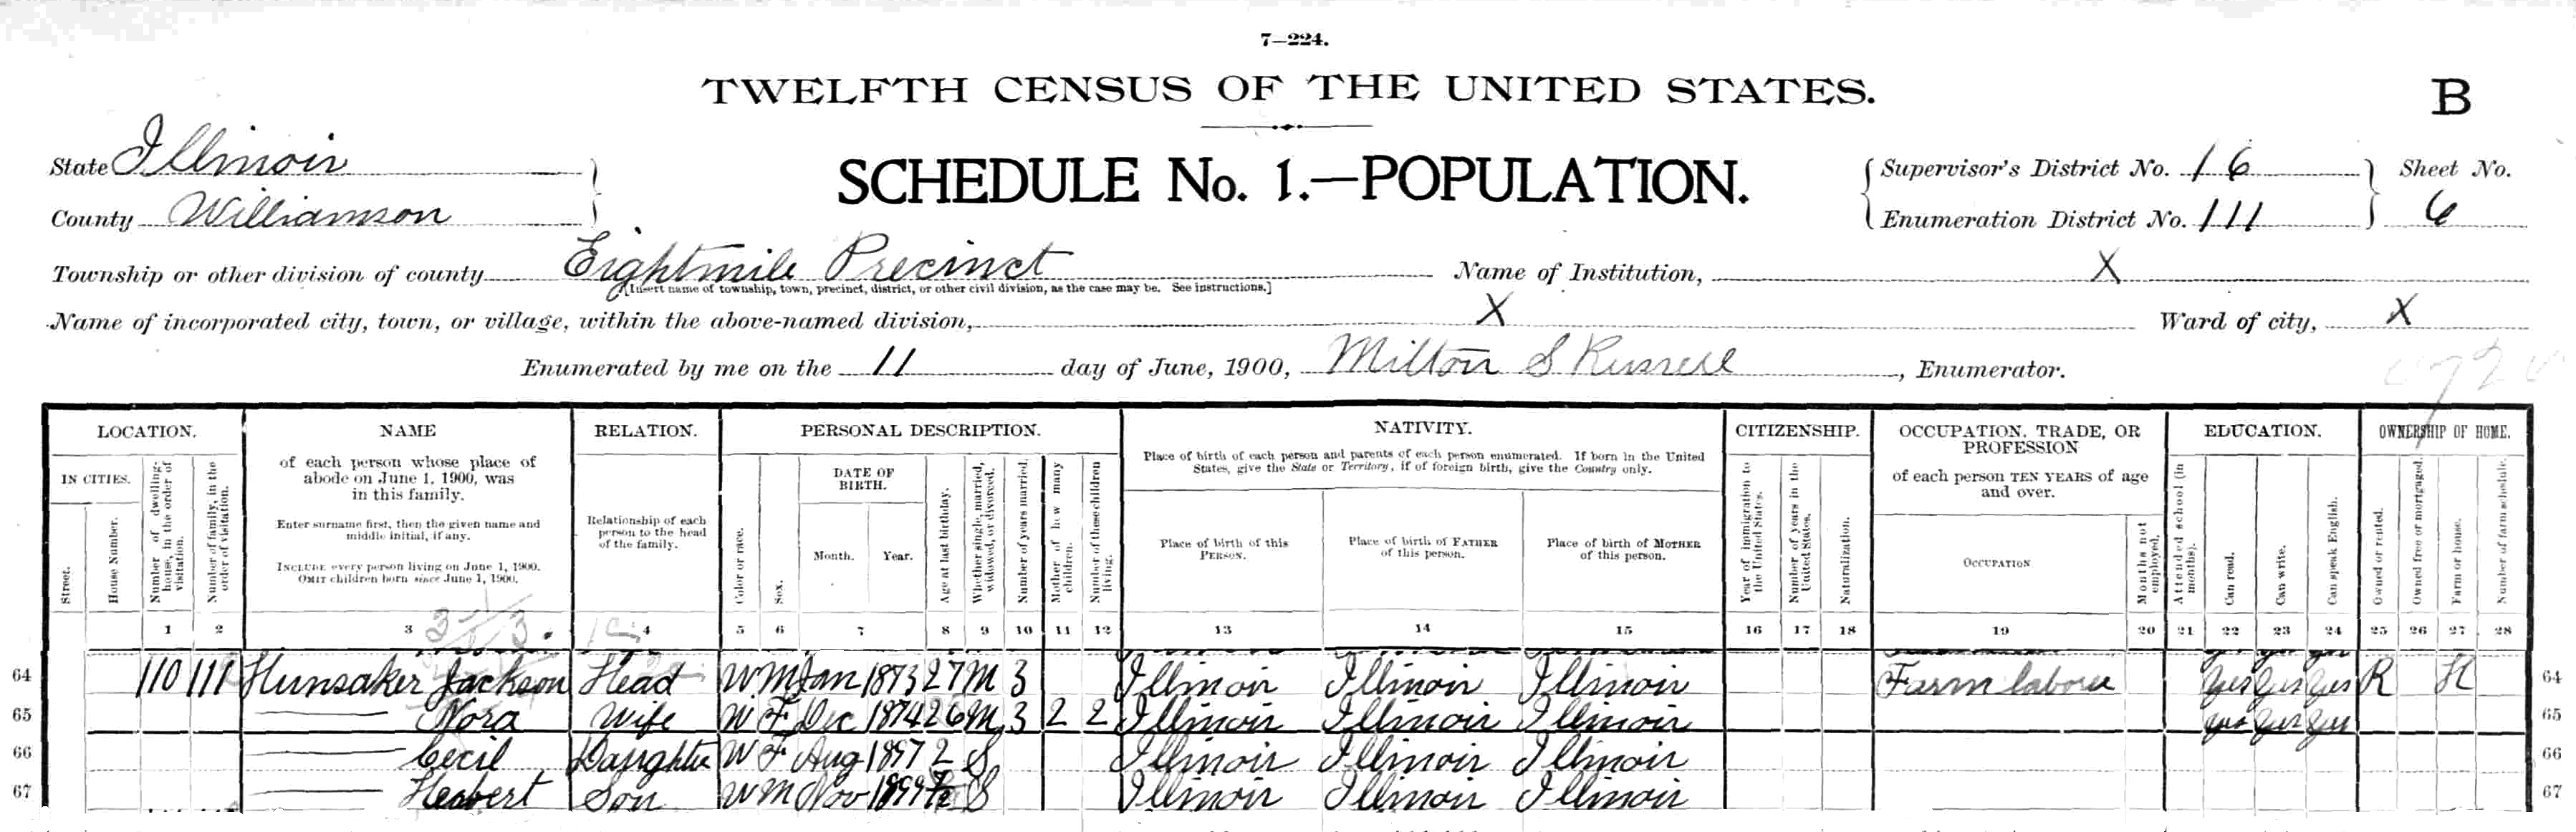 7—224.
TWELFTH CENSUS OF THE UNITED STATES.
B
State Illinois
SCHEDULE No. 1.—POPULATION.
Supervisor's District No. 16
Sheet No.
County Williamson
Enumeration District No. 111
6
Township or other division of county Eightmile Precinct
Name of Institution, X
[Insert name of township, town, precinct, district, or other civil division, as the case may be. See instructions.]
Name of incorporated city, town, or village, within the above-named division, X
Ward of city, X
Enumerated by me on the 11 day of June, 1900, Milton S Russell, Enumerator.
LOCATION.
IN CITIES.
Street.
House Number.
Number of dwelling-house, in the order of visitation.
Number of family, in the order of visitation.
NAME
of each person whose place of
abode on June 1, 1900, was
in this family.
Enter surname first, then the given name and
middle initial, if any.
INCLUDE every person living on June 1, 1900.
OMIT children born since June 1, 1900.
RELATION.
Relationship of each
person to the head
of the family.
PERSONAL DESCRIPTION.
Color or race.
Sex.
DATE OF
BIRTH.
Month.
Year.
Age at last birthday.
Whether single, married, widowed, or divorced.
Number of years married.
Mother of how many children.
Number of these children living.
NATIVITY.
Place of birth of each person and parents of each person enumerated. If born in the United
States, give the State or Territory; if of foreign birth, give the Country only.
Place of birth of this
PERSON.
Place of birth of FATHER
of this person.
Place of birth of MOTHER
of this person.
CITIZENSHIP.
Year of immigration to the United States.
Number of years in the United States.
Naturalization.
OCCUPATION, TRADE, OR
PROFESSION
of each person TEN YEARS of age
and over.
OCCUPATION
Months not employed.
EDUCATION.
Attended school (in months).
Can read.
Can write.
Can speak English.
OWNERSHIP OF HOME.
Owned or rented.
Owned free or mortgaged.
Farm or house.
Number of farm schedule.
1 2 3 4 5 6 7 8 9 10 11 12 13 14 15 16 17 18 19 20 21 22 23 24 25 26 27 28
64 110 111 Hunsaker Jackson Head W M Jan 1873 27 M 3 Illinois Illinois Illinois Farm laborer yes yes yes R H 64
65 Nora Wife W F Dec 1874 26 M 3 2 2 Illinois Illinois Illinois yes yes yes 65
66 Cecil Daughter W F Aug 1897 2 S Illinois Illinois Illinois 66
67 Herbert Son W M Nov 1899 S Illinois Illinois Illinois 67